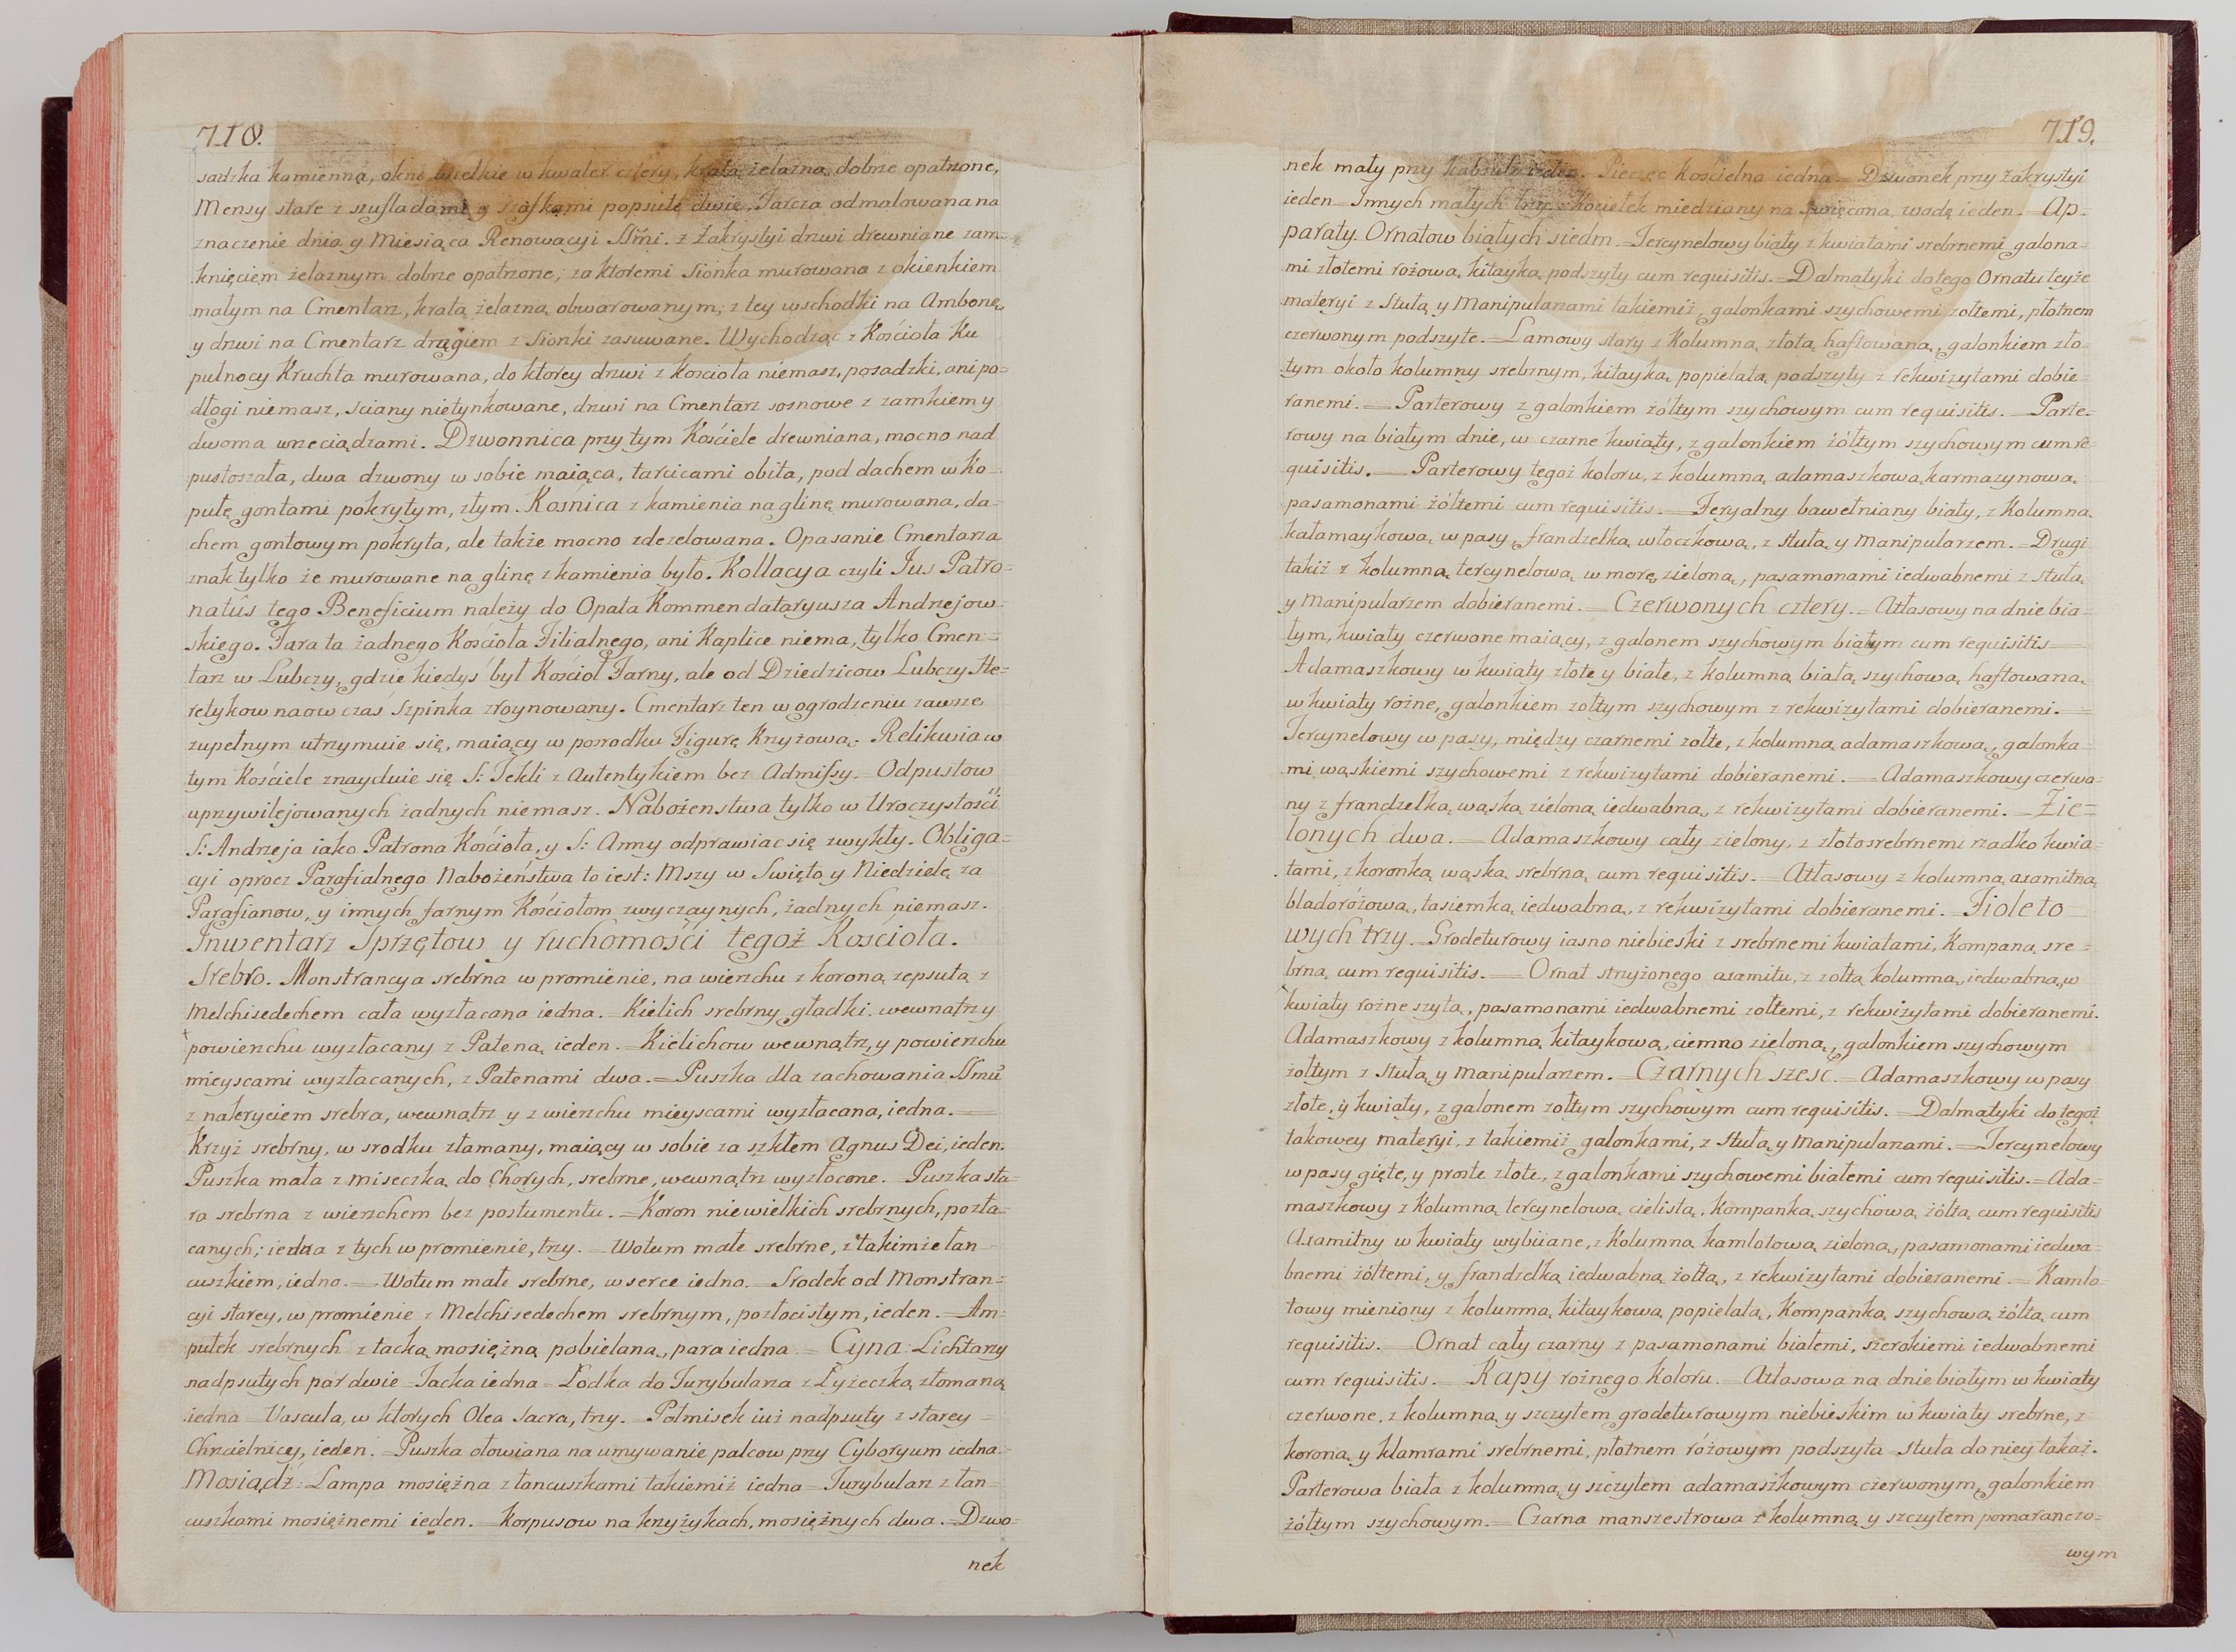 718.
sadzka kamienna, okno wielkie w kwater cztery, kratą żelazną dobrze opatrzone,
Mensy stare z szufladami y szafkami popsute dwie. Tarcza odmalowana na
znaczenie dnia y Miesiąca Renowacyi SSmi. z Zakrystyi drzwi drewniane zam-
knięciem żelaznym dobrze opatrzone, za ktoremi Sionka murowana z okienkiem
małym na Cmentarz, kratą żelazną obwarowanym, z tey wschodki na Ambonę,
y drzwi na Cmentarz drągiem z Sionki zasuwane. Wychodząc z Kościoła Ku
pułnocy Kruchta murowana, do ktorey drzwi z Kościoła niemasz, posadzki, ani po=
dłogi niemasz, sciany nietynkowane, drzwi na Cmentarz sosnowe z zamkiem y
dwoma wrzeciądzami. Dzwonnica przy tym Kościele drewniana, mocno nad
pustoszała, dwa dzwony w sobie maiąca, tarcicami obita, pod dachem w Ko-
pułę gontami pokrytym, złym. Kosnica z kamienia na glinę murowana, da-
chem gontowym pokryta, ale także mocno zdezelowana. Opasanie Cmentarza
znak tylko że murowane na glinę z kamienia było. Kollacya czyli Jus Patro-
natûs tego Beneficium należy do Opata Kommendataryusza Andrzejow-
skiego. Fara ta żadnego Kościoła Filialnego, ani Kaplice niema, tylko Cmen=
tarz w Lubczy, gdzie kiedyś był Kościoł Farny, ale od Dziedzicow Lubczy He=
retykow naow czas Szpinka zroynowany. Cmentarz ten w ogrodzeniu zawsze
zupełnym utrzymuie się, maiący w posrodku Figurę Krzyżową. Relikwia w
tym Kościele znayduie się S: Tekli z Autentykiem bez Admissy. Odpustow
uprzywilejowanych żadnych niemasz. Nabożenstwa tylko w Uroczystości
S: Andrzeja iako Patrona Kościoła, y S: Anny odprawiac się zwykły. Obliga=
cyi oprocz Parafialnego Nabożeństwa to iest: Mszy w Swięto y Niedzielę za
Parafianow, y innych farnym Kościołom zwyczaynych, żadnych niemasz.
Inwentarz Sprzętow y ruchomości tegoż Kościoła.
Srebro. Monstrancya srebrna w promienie, na wierzchu z koroną zepsutą z
Melchisedechem cała wyzłacana iedna. Kielich srebrny gładki, wewnątrz y
powierzchu wyzłacany z Pateną ieden. Kielichow wewnątrz, y powierzchu
mieyscami wyzłacanych, z Patenami dwa. Puszka dla zachowania SSmû
z nakryciem srebra, wewnątrz y z wierzchu mieyscami wyzłacana, iedna.
Krzyż srebrny, w srodku złamany, maiący w sobie za szkłem Agnus Dei, ieden.
Puszka mała z miseczką do Chorych, srebrne, wewnątrz wyzłocone. Puszka sta-
ra srebrna z wierzchem bez postumentu. Koron niewielkich srebrnych, pozła-
canych; iedna z tych w promienie, trzy. Wotum małe srebrne, z takimie łan-
cuszkiem, iedno. Wotum małe srebrne, w serce iedno. Srodek od Monstran=
cyi starey, w promienie z Melchisedechem srebrnym, pozłocistym, ieden. Am=
pułek srebrnych z tacką mosiężną pobielaną, para iedna. Cyna: Lichtarzy
nadpsutych par dwie Tacka iedna Łodka do Turybularza z Łyżeczką złomaną
iedna Vascula, w ktorych Olea Sacra, trzy. Połmisek iuż nadpsuty z starey
Chrzcielnicy, ieden. Puszka ołowiana na umywanie palcow przy Cyboryum iedna.
Mosiądź: Lampa mosiężna z łancuszkami takiemiż iedna Turybularz z łan-
cuszkami mosiężnemi ieden. Korpusow na krzyżykach, mosiężnych dwa. Dzwo=
nek
719.
nek mały przy ieden. Pieczęc Kościelna iedna Dzwonek przy Zakrystyi
ieden Innych małych trzy. Kociełek miedziany na święconą wodę ieden. Ap-
paraty. Ornatow białych siedm Tercynelowy biały z kwiatami srebrnemi galona-
mi złotemi rożową kitayką podszyty cum requisitis. Dalmatyki do tego Ornatu teyże
materyi z Stułą y Manipularzami takiemiż, galonkami szychowemi zołtemi, płotnem
czerwonym podszyte. Lamowy stary z Kolumną złotą haftowaną, galonkiem zło-
tym około kolumny srebrnym, kitayką popielatą podszyty z rekwizytami dobie-
ranemi. Parterowy z galonkiem żółtym szychowym cum requisitis. Parte-
rowy na białym dnie, w czarne kwiaty, z galonkiem żółtym szychowym cum re-
quisitis. Parterowy tegoż koloru, z kolumną adamaszkową karmazynową
pasamonami żółtemi cum requisitis. Feryalny bawełniany biały, z Kolumną
kałamaykową w pasy, frandzelką włoczkową, z stułą y Manipularzem. Drugi
takiż z kolumną tercynelową w morę zieloną, pasamonami iedwabnemi z stułą
y Manipularzem dobieranemi. Czerwonych cztery. Atłasowy na dnie bia-
łym, kwiaty czerwone maiący, z galonem szychowym białym cum requisitis
Adamaszkowy w kwiaty złote y białe, z kolumną białą szychową haftowaną
w kwiaty rożne, galonkiem zołtym szychowym z rekwizytami dobieranemi.
Tercynelowy w pasy, między czarnemi żołte, z kolumną adamaszkową, galonka-
mi wąskiemi szychowemi z rekwizytami dobieranemi. Adamaszkowy czerwo-
ny z frandzelką wąską zieloną iedwabną, z rekwizytami dobieranemi. Zie=
lonych dwa. Adamaszkowy cały zielony, z złotosrebrnemi rzadko kwia-
tami, z koronką wąską srebrną cum requisitis. Atłasowy z kolumną axamitną
bladoróżową, tasiemką iedwabną, z rekwizytami dobieranemi. Fioleto
wych trzy. Grodeturowy iasno niebieski z srebrnemi kwiatami, Kompaną sre-
brną cum requisitis. Ornat strzyżonego axamitu, z zołtą kolumną iedwabną, w
kwiaty rożne szytą, pasamonami iedwabnemi zołtemi, z rekwizytami dobieranemi.
Adamaszkowy z kolumną kitaykową, ciemno zieloną, galonkiem szychowym
żołtym z Stułą y Manipularzem. Czarnych szesć. Adamaszkowy w pasy
złote, y kwiaty, z galonem zołtym szychowym cum requisitis. Dalmatyki do tegoż
takowey materyi, z takiemiż galonkami, z Stułą y Manipularzami. Tercynelowy
w pasy gięte, y proste złote, z galonkami szychowemi białemi cum requisitis. Ada-
maszkowy z Kolumną tercynelową cielistą, Kompanką szychową żółtą cum requisitis
Axamitny w kwiaty wybiiane, z Kolumną kamlotową zieloną, pasamonami iedwa-
bnemi żółtemi, y frandzelką iedwabną żołtą, z rekwizytami dobieranemi. Kamlo-
towy mieniony z kolumną kitaykową popielatą, Kompanką szychową żółtą cum
requisitis. Ornat cały czarny z pasamonami białemi, szerokiemi iedwabnemi
cum requisitis. Kapy rożnego Koloru. Atłasowa na dnie białym w kwiaty
czerwone, z kolumną y szczytem grodeturowym niebieskim w kwiaty srebrne, z
koroną y klamrami srebrnemi, płotnem różowym podszyta Stuła do niey takaż.
Parterowa biała z kolumną y szczytem adamaszkowym czerwonym, galonkiem
żółtym szychowym. Czarna manszestrowa z kolumną y szczytem pomaranczo=
wym